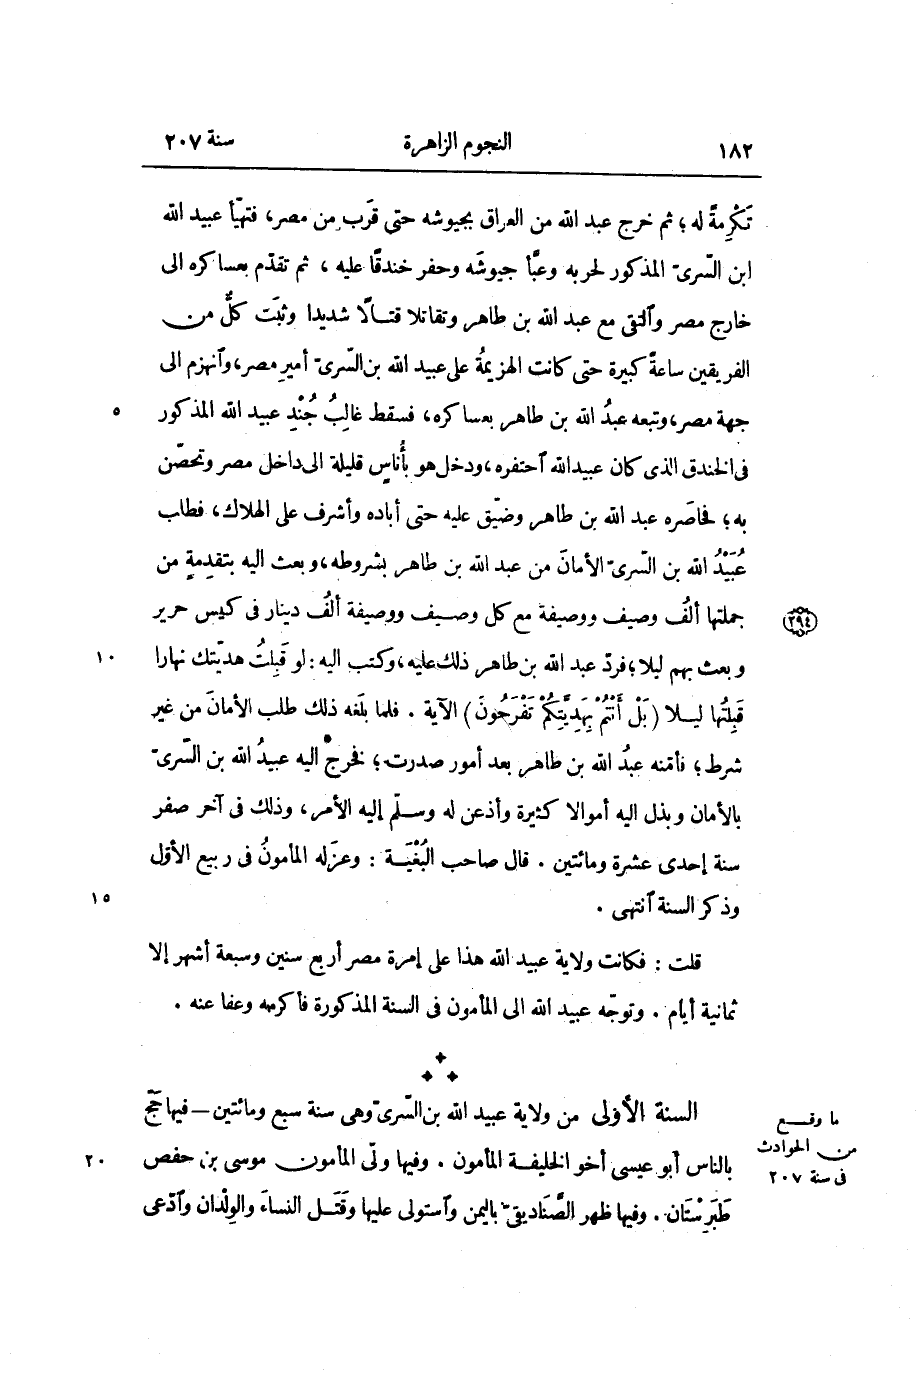 ١٨٢ النجوم الزاهرة سنة ٢٠٧
تَكْرِمةً له؛ ثم خرج عبد الله من العراق بجيوشه حتى قَرَب من مصر، فتهيّأ عبيد الله
ابن السّرىّ المذكور لحربه وعبَّأ جيوشَه وحفر خندقًا عليه، ثم تقدّم بعساكره الى
خارج مصر وٱلتقى مع عبد الله بن طاهر وتقاتلا قتالًا شديدا وثبَت كلٌّ من
الفريقين ساعةً كبيرة حتى كانت الهزيمةُ على عبيد الله بن السّرىّ أميرِ مصر، وٱنهزم الى
جهة مصر، وتبعه عبدُ الله بن طاهر بعساكره، فسقط غالبُ جُنْدِ عبيد الله المذكور ٥
فى الخندق الذى كان عبيد الله ٱحتفره، ودخل هو بأُناسٍ قليلة الى داخل مصر وتحصّن
به؛ فحاصَره عبد الله بن طاهر وضيّق عليه حتى أباده وأشرف على الهلاك، فطلب
عُبَيْدُ الله بن السّرىّ الأمانَ من عبد الله بن طاهر بشروطه، وبعث اليه بتقدِمةٍ من
جملتها ألفُ وصيف ووصيفة مع كل وصيف ووصيفة ألفُ دينار فى كيس حرير ٢٩٤
وبعث بهم ليلا؛ فردّ عبد الله بن طاهر ذلك عليه، وكتب اليه: لو قَبِلتُ هديّتك نهارا ١٠
قَبِلتُها ليلا (بَلْ أَنْتُمْ بِهَدِيَّتِكُمْ تَفْرَحُونَ) الآية. فلما بلَغه ذلك طلب الأمانَ من غير
شرط؛ فأمّنه عبدُ الله بن طاهر بعد أمور صدرت؛ فخرج اليه عبيدُ الله بن السّرىّ
بالأمان وبذل اليه أموالا كثيرة وأذعن له وسلّم إليه الأمر، وذلك فى آخر صفر
سنة إحدى عشرة ومائتين. قال صاحب البُغْيَة: وعزَله المأمونُ فى ربيع الأوّل
وذكر السنة ٱنتهى. ١٥
قلت: فكانت ولاية عبيد الله هذا على إمرة مصر أربع سنين وسبعة أشهر إلا
ثمانية أيام. وتوجّه عبيد الله الى المأمون فى السنة المذكورة فأكرمه وعفا عنه.
✦
✦ ✦
السنة الأولى من ولاية عبيد الله بن السّرىّ وهى سنة سبع ومائتين — فيها حَجّ
بالناس أبو عيسى أخو الخليفة المأمون. وفيها ولّى المأمون موسى بن حفص ٢٠
طَبَرِسْتَان. وفيها ظهر الصَّنَاديقىّ باليمن وٱستولى عليها وقَتَل النساءَ والوِلْدان وٱدّعى
ما وقع
من الحوادث
فى سنة ٢٠٧